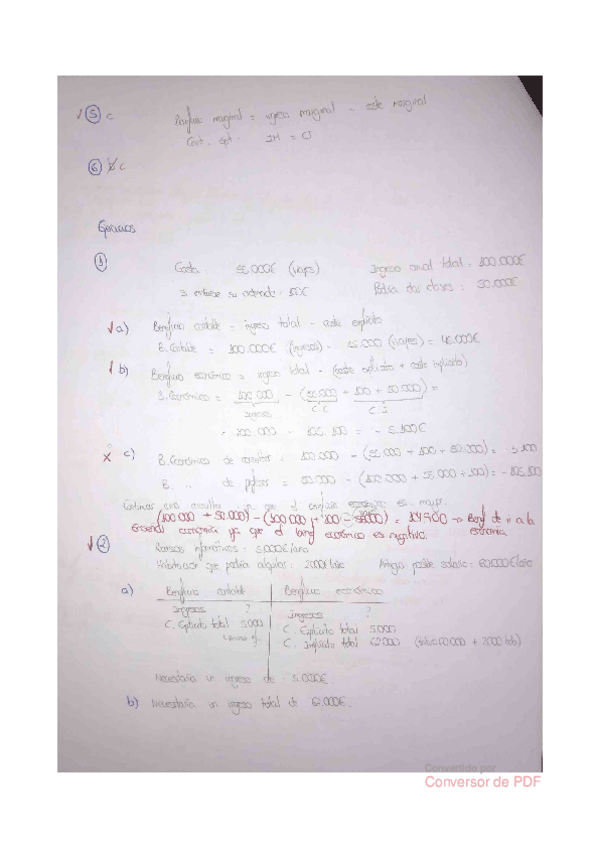 √ 5 c Beneficio marginal = ingreso marginal - coste marginal
Cant. opt. IM = CJ
6 c
Ejercicios
1 Costes: 55.000€ (viajes) Ingreso anual total: 100.000€
Daba dos clases: 50.000€
√ a) Beneficio contable = ingreso total - coste explícito
B. Contable = 100.000€ (ingresos) - 55.000 (viajes) = 45.000€
√ b) Beneficio económico = ingreso total - (coste explícito + coste implícito)
B. Económico = 100.000 - (55.000 + 100 + 50.000) =
ingresos C.E C.I
= 100.000 - 105.100 = - 5.100€
x c) B. Económico de = 100.000 - (55.000 + 100 + 50.000) = - 5.100
B. " de = 50.000 - (100.000 + 55.000 + 100) = - 105.100
ya que el beneficio económico es mayor.
(100 000 + 50.000) - (100 000 + 100 - 55000) = → Benf de ir a la
economía ya que el benf económico es negativo. economía
√ 2 informáticos: 5.000€/año
Habitación que podría alquilar: 2000€/año Amigo posible salario: 60.000€/año
a) Beneficio contable Beneficio económico
Ingresos ? Ingresos ?
C. Explícito total 5.000 C. Explícito total 5.000
C. implícito total 62000 (salario 60.000 + 2000 hab)
Necesitaría un ingreso de 5.000€.
b) Necesitaría un ingreso total de 62.000€.
Convertido por
Conversor de PDF